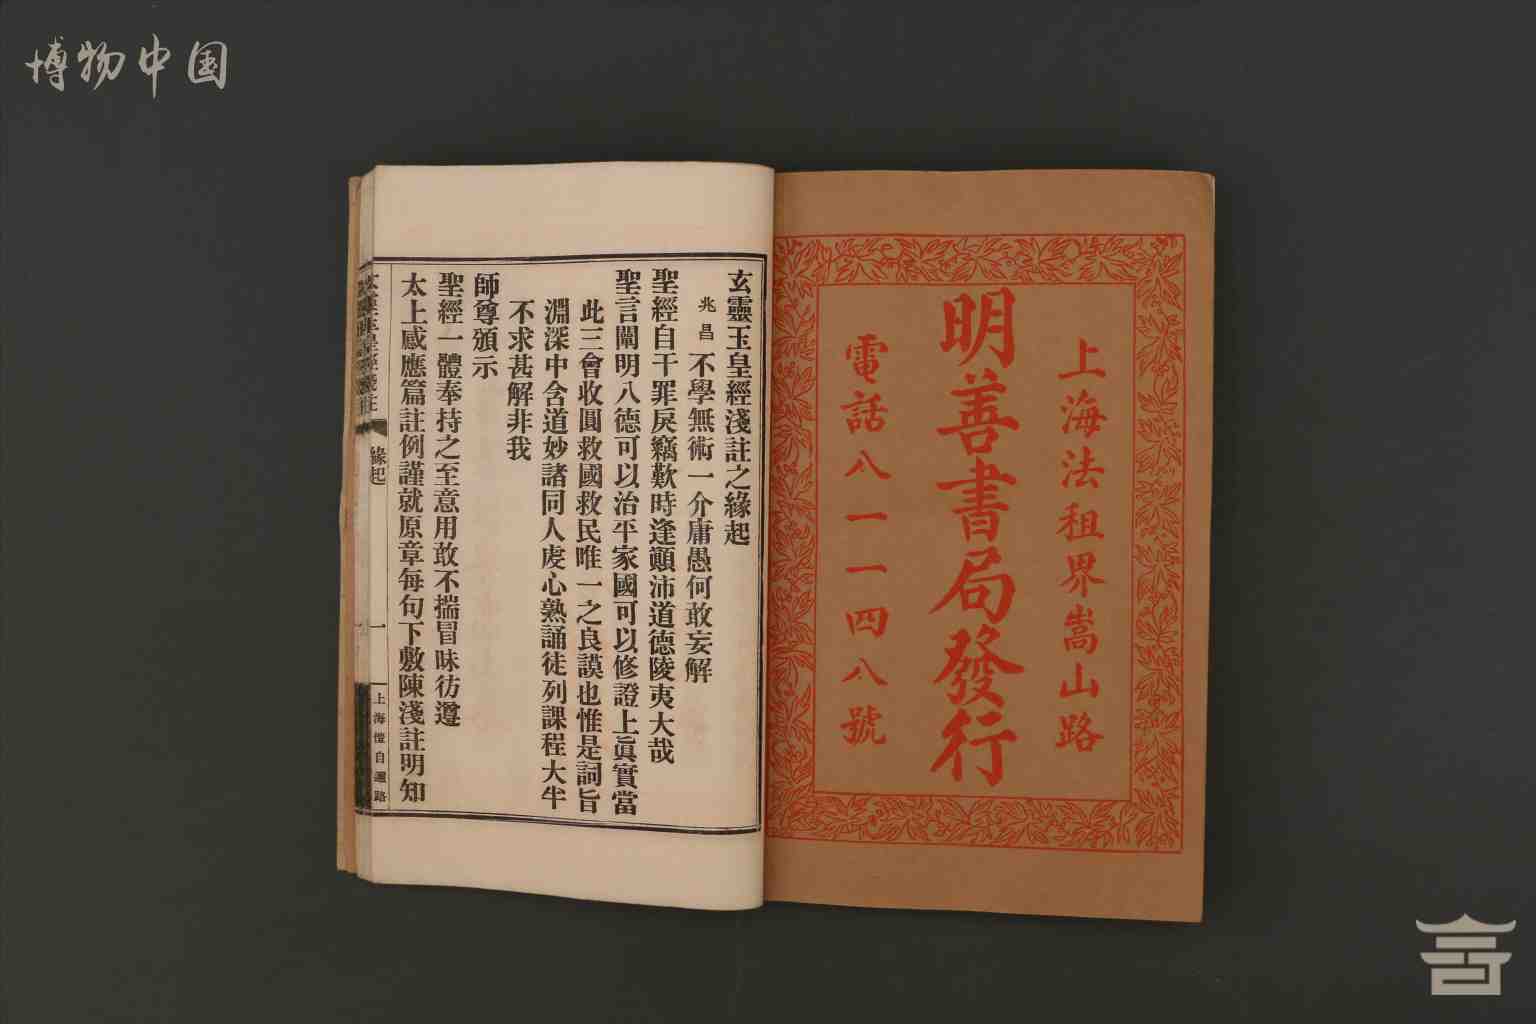 博物中国
上海法租界嵩山路
明善書局發行
電話八一一四八號
玄靈玉皇經淺註之緣起
兆昌不學無術一介庸愚何敢妄解
聖經自干罪戾竊歎時逢顚沛道德陵夷大哉
聖言闡明八德可以治平家國可以修證上眞實當
此三會收圓救國救民唯一之良謨也惟是詞旨
淵深中含道妙諸同人虔心熟誦徒列課程大半
不求甚解非我
師尊頒示
聖經一體奉持之至意用敢不揣冒昧彷遵
太上感應篇註例謹就原章每句下敷陳淺註明知
緣起
一
上海愷自邇路